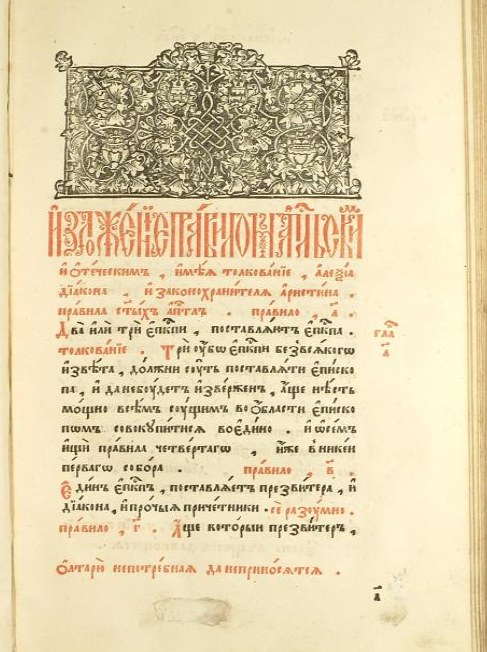 И҆зложе́нїе пра́виломъ а҆пⷭ҇льскимъ
и҆ ѻ҆те́ческимъ , и҆мѣ́ѧ толкова́нїе , а҆леѯі́а
дїа́кона , и҆ законохрани́телѧ а҆ри́стина .
пра́вила ст҃ы́хъ а҆пⷭ҇тлъ . пра́вило , а҃ .
Два̀ и҆лѝ трѝ є҆пⷭ҇кпи , поставлѧ́ютъ є҆пⷭ҇кпа .
толкова́нїе . Трѝ ѹ҆́бѡ є҆пⷭ҇кпи без̾всѧ́кагѡ
и҆звѣ́та , до́лжни сѹ́ть поставлѧ́ти є҆пи́ско
па , и҆ да небѹ́детъ и҆зве́рженъ , а҆́ще нѣ́сть
мо́щно всѣ́мъ сѹ́щимъ во ѻ҆́бласти є҆пи́ско
пѡмъ совокѹпи́тисѧ воє҆ди́но . и҆ ѡ҆се́мъ
и҆щѝ пра́вила четве́ртагѡ , и҆́же в̾ нике́и
пе́рвагѡ собо́ра . пра́вило , в҃ .
Є҆ди́нъ є҆пⷭ҇кпъ , поставлѧ́етъ презви́тера , и҆
дїа́кона , и҆ про́чыѧ приче́тники . сѐ разѹ́мно .
пра́вило , г҃ . А҆́ще кото́рыи презви́теръ ,
гла҃
а҃
ѻ҆лтарю̀ непотре́бнаѧ да неприно́сѧтсѧ .
а҃